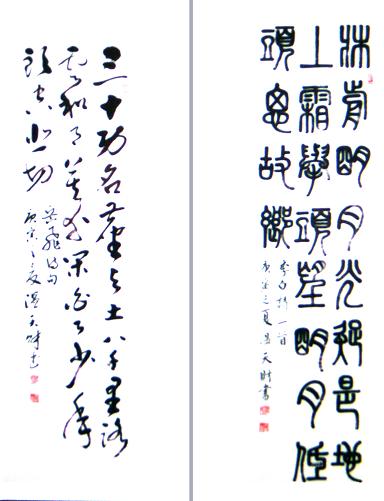 三十功名塵与土八千里路
云和月莫等闲白了少年
头空悲切
岳飛诗句
庚寅之夏温天财书
牀前明月光疑是地
上霜舉頭望明月低
頭思故鄉
李白詩一首
庚寅之夏温天财書